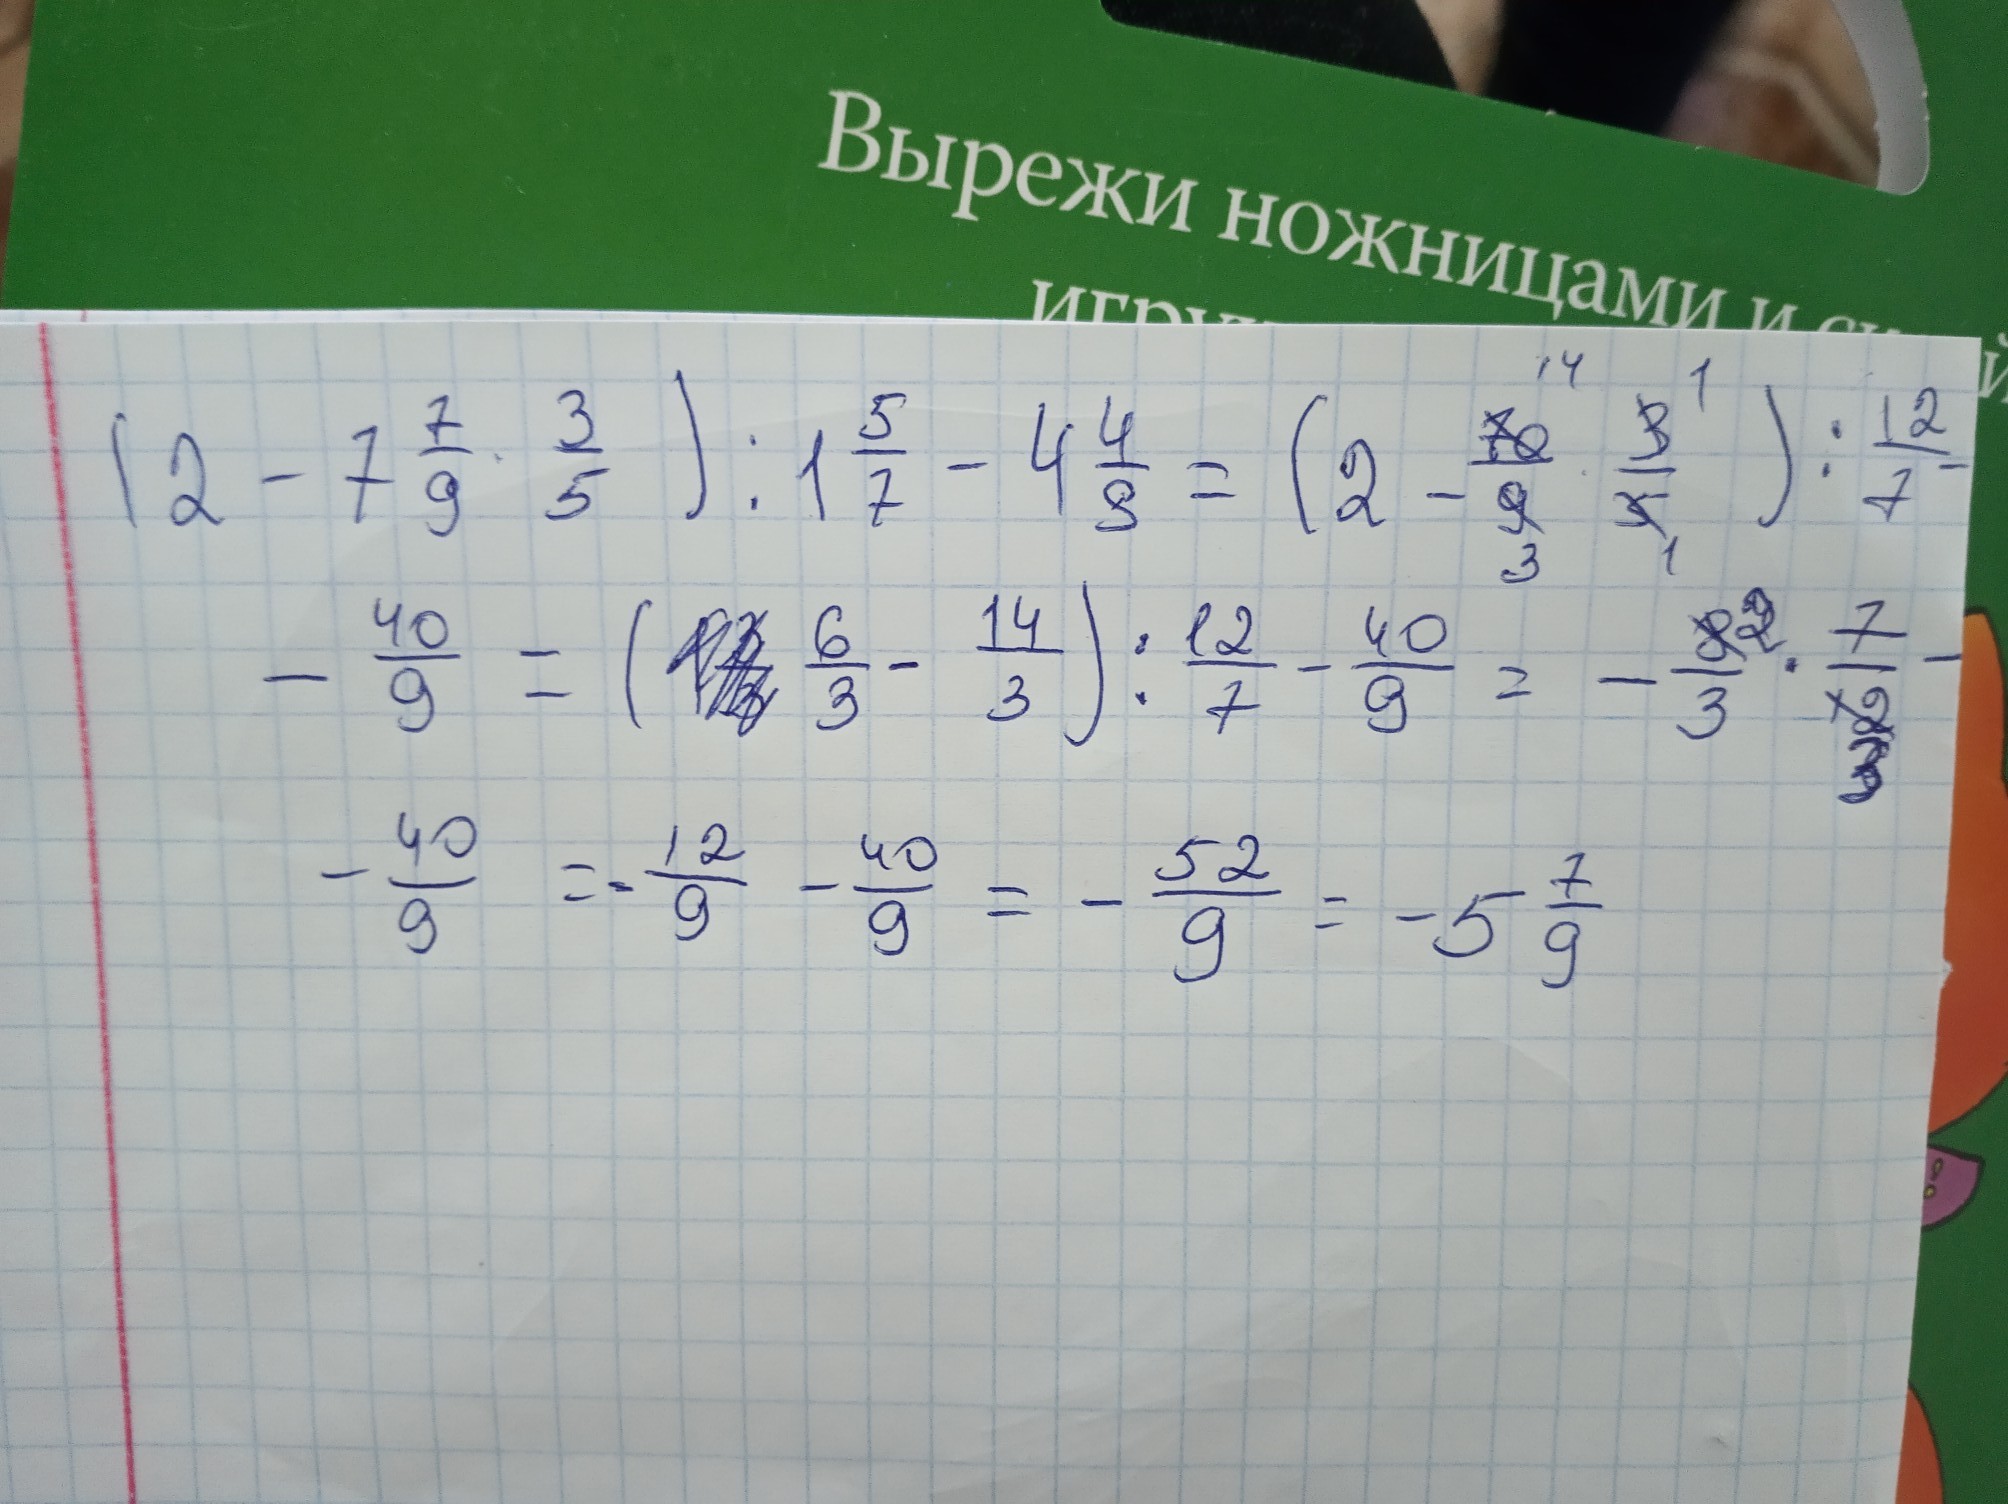 Вырежи ножницами и
(2 - 7 7/9 · 3/5) : 1 5/7 - 4 4/9 = (2 - 70/9 · 3/5) : 12/7 -
14 1
3 1
- 40/9 = (6/3 - 14/3) : 12/7 - 40/9 = - 8/3 2 · 7/12 -
3
- 40/9 = - 12/9 - 40/9 = - 52/9 = - 5 7/9